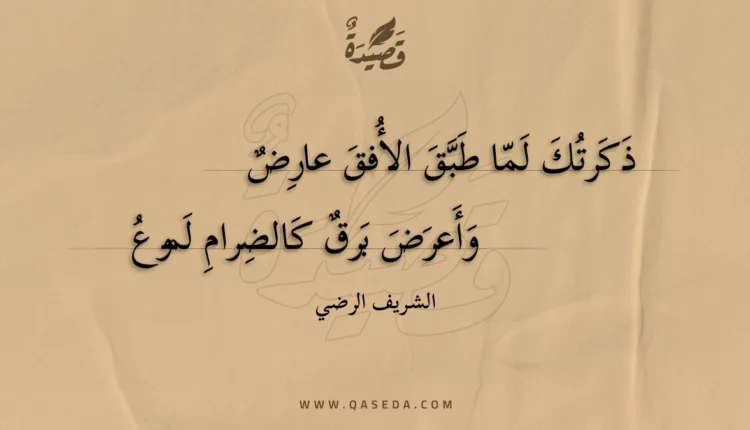 قَصِيْدَةٌ
ذَكَرتُكَ لَمّا طَبَّقَ الأُفقَ عارِضٌ
وَأَعرَضَ بَرقٌ كَالضِرامِ لَموعُ
الشريف الرضي
WWW.QASEDA.COM